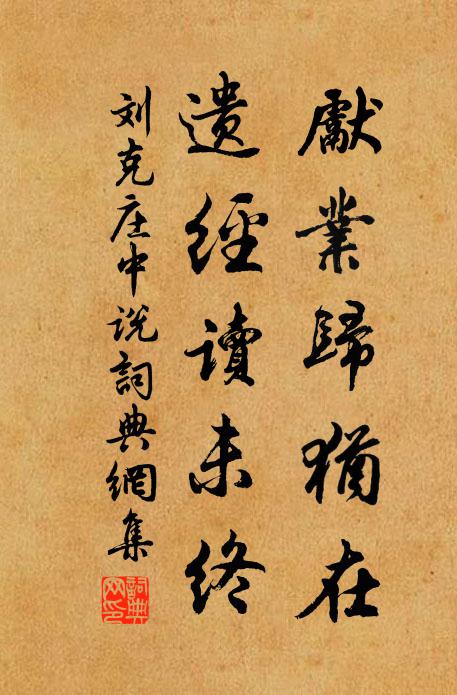 獻業歸猶在
遺經讀未終
刘克庄中说詞典網集
詞典
网印